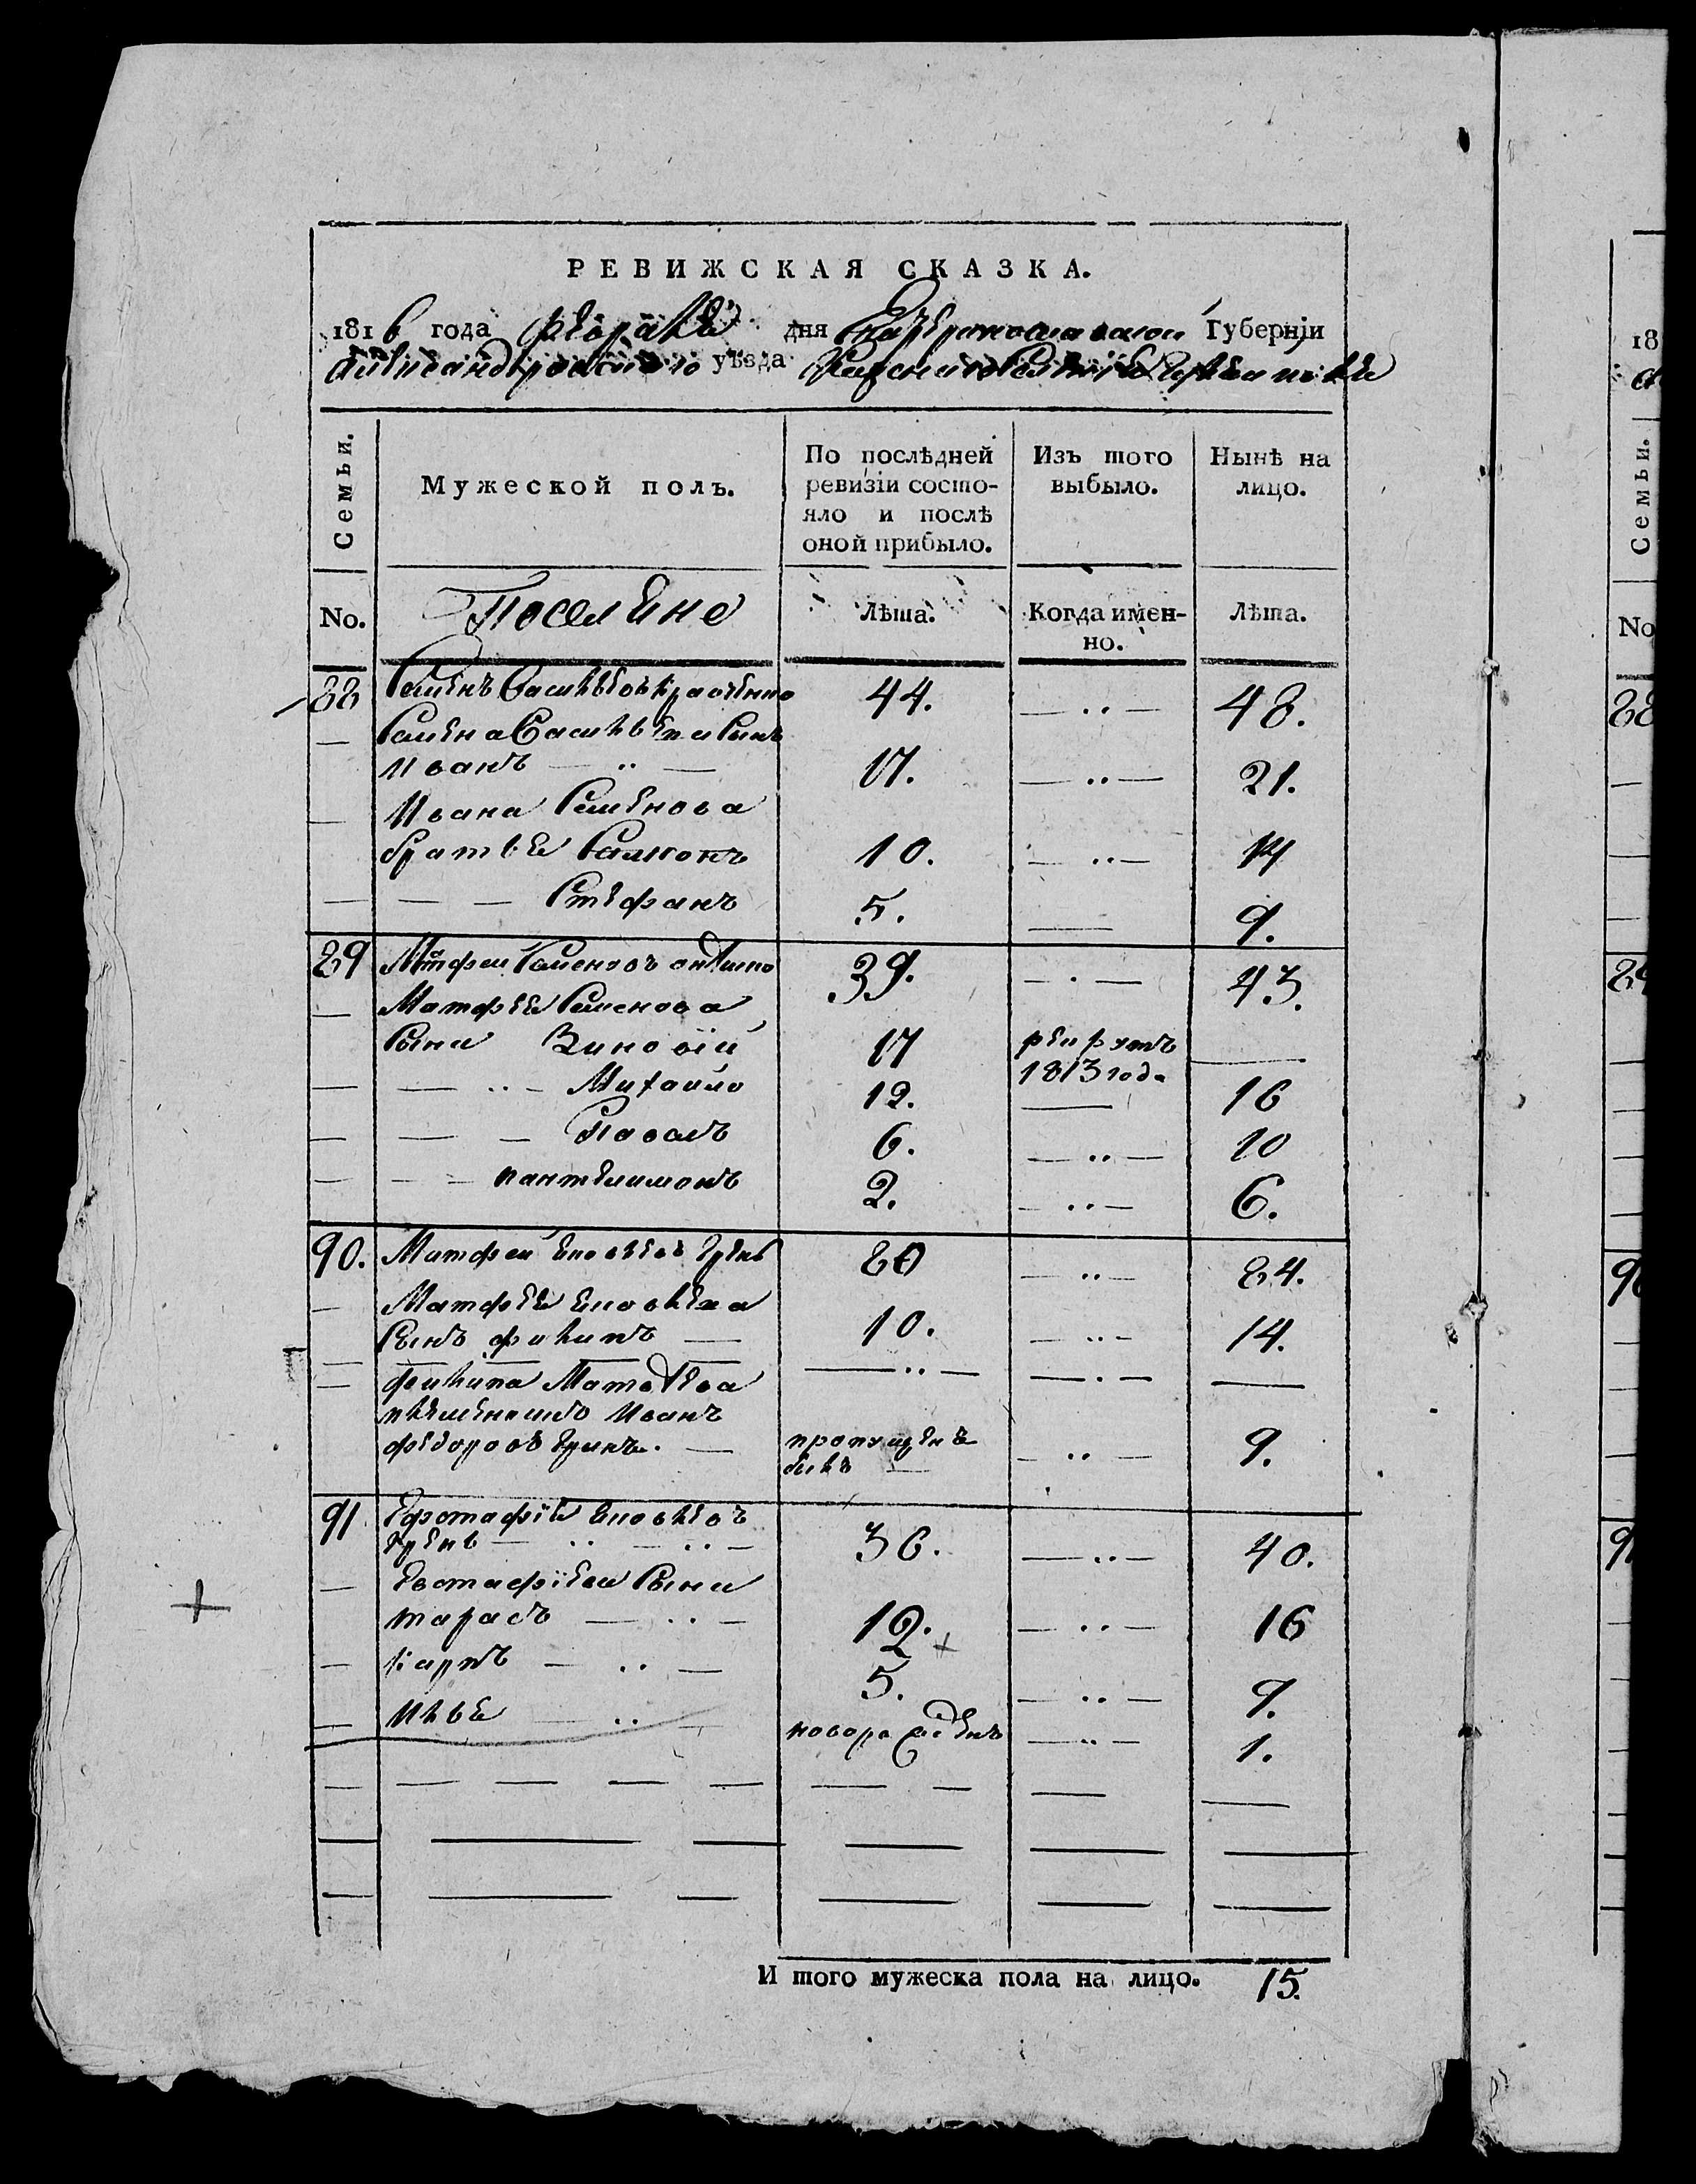 РЕВИЖСКАЯ СКАЗКА.
1816 года февраля дня Екатеринославской Губерніи
Александровскаго уѣзда
Семьи.
Мужеской полъ.
По послѣдней ревизіи состояло и послѣ оной прибыло.
Изъ того выбыло.
Нынѣ на лицо.
No.
Поселяне
Лѣта.
Когда именно.
Лѣта.
88 Семенъ Васильевъ 44. — .. — 48.
— Семена Васильева сынъ
Иванъ — .. — 17. — .. — 21.
— Ивана Семенова
братья Самсонъ 10. — .. — 14
— — — Стефанъ 5. — 9.
89 Матфей Семеновъ 39. — . — 43.
— Матфея Семенова
сыни Зиновій 17 рекрутъ 1813 года —
— — .. — Михайло 12. — 16
— — — Павелъ 6. — .. — 10
— — — пантелимонъ 2. — .. — 6.
90. Матфей 80 — .. — 84.
— Матфея
сынъ филипъ — 10. — .. — 14.
— филипа Матвѣева — .. — — . — —
племенникъ Иванъ
федоровъ — пропущенъ былъ — — .. — 9.
91 Ефстафій
— .. — .. — 36. — .. — 40.
— Евстафіевы сыни
тарасъ — .. — 12. — .. — 16
— карпъ — .. — 5. — .. — 9.
— Илья — .. — новорожденъ — .. — 1.
И того мужеска пола на лицо. 15.
18
Семьи.
No
88
89
90
91